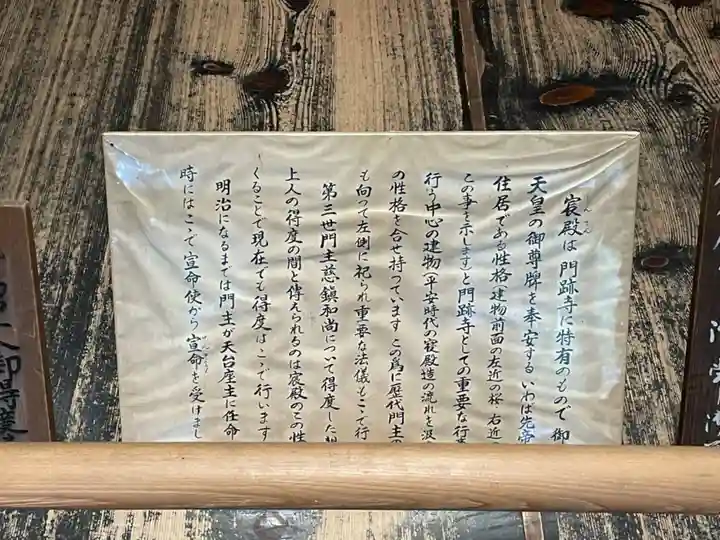 宸殿は門跡寺に特有のもので御
天皇の御尊牌を奉安するいわば先帝
住居である性格(建物前面の左近の桜・右近
この事を示します)と門跡寺としての重要な行
行う中心の建物(平安時代の寝殿造の流れを汲
の性格を合せ持っています この為に歴代門主の
も向って左側に祀られ重要な法儀もこゝで行
第三世門主慈鎮和尚について得度した
上人の得度の間と傳えられるのは宸殿のこの性
くることで現在でも得度はこゝで行います
明治になるまでは門主が天台座主に任命
時にはこゝで宣命使から宣命を受けまし
得度